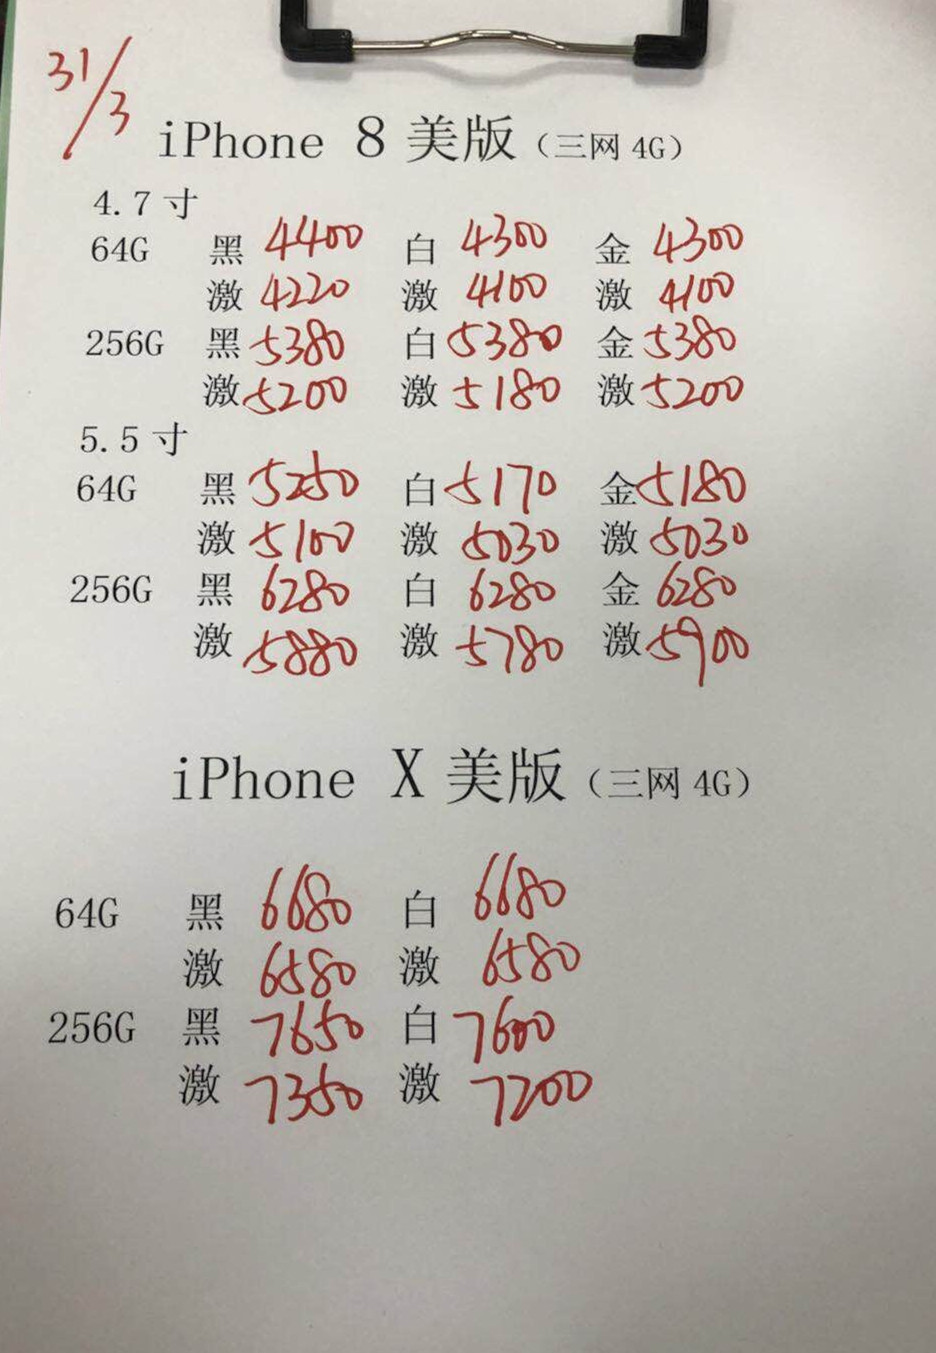 31/3
iPhone 8 美版（三网 4G）
4.7 寸
64G 黑 4400 白 4300 金 4300
激 4220 激 4100 激 4100
256G 黑 5380 白 5380 金 5380
激 5200 激 5180 激 5200
5.5 寸
64G 黑 5250 白 5170 金 5180
激 5100 激 5030 激 5030
256G 黑 6280 白 6280 金 6280
激 5880 激 5780 激 5900
iPhone X 美版（三网 4G）
64G 黑 6680 白 6680
激 6580 激 6580
256G 黑 7650 白 7600
激 7350 激 7200